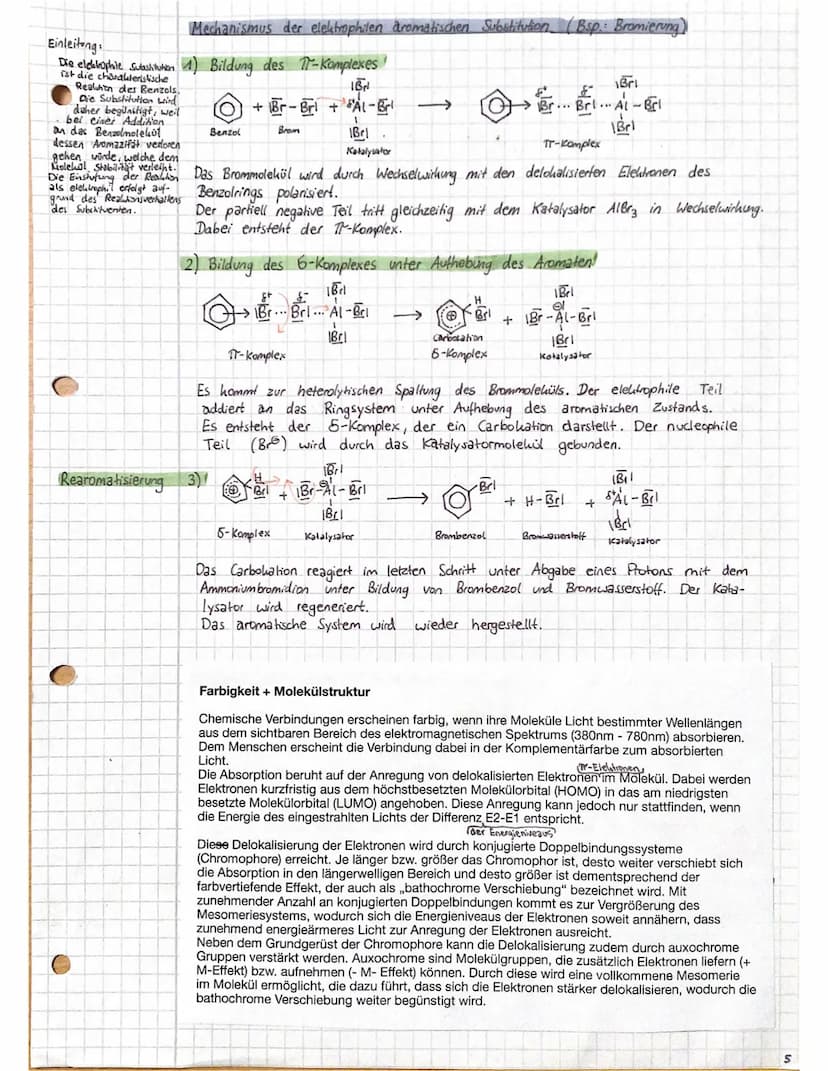 Mechanismus der elektrophilen aromatischen Substitution (Bsp.: Bromierung)
Einleitung:
Die elektrophile Substitution
ist die charakteristische
Reaktion des Benzols.
Die Substitution wird
daher begünstigt, weil
bei einer Addition
an das Benzolmolekül
dessen Aromazität verloren
gehen würde, welche dem
Molekül Stabilität verleiht.
Die Einstufung der Reaktion
als elektrophil erfolgt auf-
grund des Reaktionsverhaltens
des Substituenten.
1) Bildung des π-Komplexes!
|Br|
+ |Br – Br| + δ+Al – Br| → δ+ δ- |Br ... Br| ... Al – Br|
|Br|
|Br|
|Br|
Benzol Brom Katalysator π-Komplex
Das Brommolekül wird durch Wechselwirkung mit den delokalisierten Elektronen des
Benzolrings polarisiert.
Der partiell negative Teil tritt gleichzeitig mit dem Katalysator AlBr3 in Wechselwirkung.
Dabei entsteht der π-Komplex.
2) Bildung des б-Komplexes unter Aufhebung des Aromaten!
δ+ δ- |Br| H |Br|
→ |Br ... Br| ... Al – Br| → Br| + |Br – Al – Br|
|Br| ⊕ ⊖ |Br|
Carbokation
π-Komplex б-Komplex Katalysator
Es kommt zur heterolytischen Spaltung des Brommoleküls. Der elektrophile Teil
addiert an das Ringsystem unter Aufhebung des aromatischen Zustands.
Es entsteht der б-Komplex, der ein Carbokation darstellt. Der nucleophile
Teil (Br⊖) wird durch das Katalysatormolekül gebunden.
Rearomatisierung 3)!
H |Br| |Br|
⊕ Br| + |Br – Al – Br| → Br| + H – Br| + δ+Al – Br|
⊖ |Br| |Br|
б-Komplex Katalysator Brombenzol Bromwasserstoff Katalysator
Das Carbokation reagiert im letzten Schritt unter Abgabe eines Protons mit dem
Ammoniumbromidion unter Bildung von Brombenzol und Bromwasserstoff. Der Kata-
lysator wird regeneriert.
Das aromatische System wird wieder hergestellt.
Farbigkeit + Molekülstruktur
Chemische Verbindungen erscheinen farbig, wenn ihre Moleküle Licht bestimmter Wellenlängen
aus dem sichtbaren Bereich des elektromagnetischen Spektrums (380nm - 780nm) absorbieren.
Dem Menschen erscheint die Verbindung dabei in der Komplementärfarbe zum absorbierten
Licht.
(π-Elektronen)
Die Absorption beruht auf der Anregung von delokalisierten Elektronen im Molekül. Dabei werden
Elektronen kurzfristig aus dem höchstbesetzten Molekülorbital (HOMO) in das am niedrigsten
besetzte Molekülorbital (LUMO) angehoben. Diese Anregung kann jedoch nur stattfinden, wenn
die Energie des eingestrahlten Lichts der Differenz E2-E1 entspricht.
der Energieniveaus
Diese Delokalisierung der Elektronen wird durch konjugierte Doppelbindungssysteme
(Chromophore) erreicht. Je länger bzw. größer das Chromophor ist, desto weiter verschiebt sich
die Absorption in den längerwelligen Bereich und desto größer ist dementsprechend der
farbvertiefende Effekt, der auch als „bathochrome Verschiebung“ bezeichnet wird. Mit
zunehmender Anzahl an konjugierten Doppelbindungen kommt es zur Vergrößerung des
Mesomeriesystems, wodurch sich die Energieniveaus der Elektronen soweit annähern, dass
zunehmend energieärmeres Licht zur Anregung der Elektronen ausreicht.
Neben dem Grundgerüst der Chromophore kann die Delokalisierung zudem durch auxochrome
Gruppen verstärkt werden. Auxochrome sind Molekülgruppen, die zusätzlich Elektronen liefern (+
M-Effekt) bzw. aufnehmen (- M- Effekt) können. Durch diese wird eine vollkommene Mesomerie
im Molekül ermöglicht, die dazu führt, dass sich die Elektronen stärker delokalisieren, wodurch die
bathochrome Verschiebung weiter begünstigt wird.
5